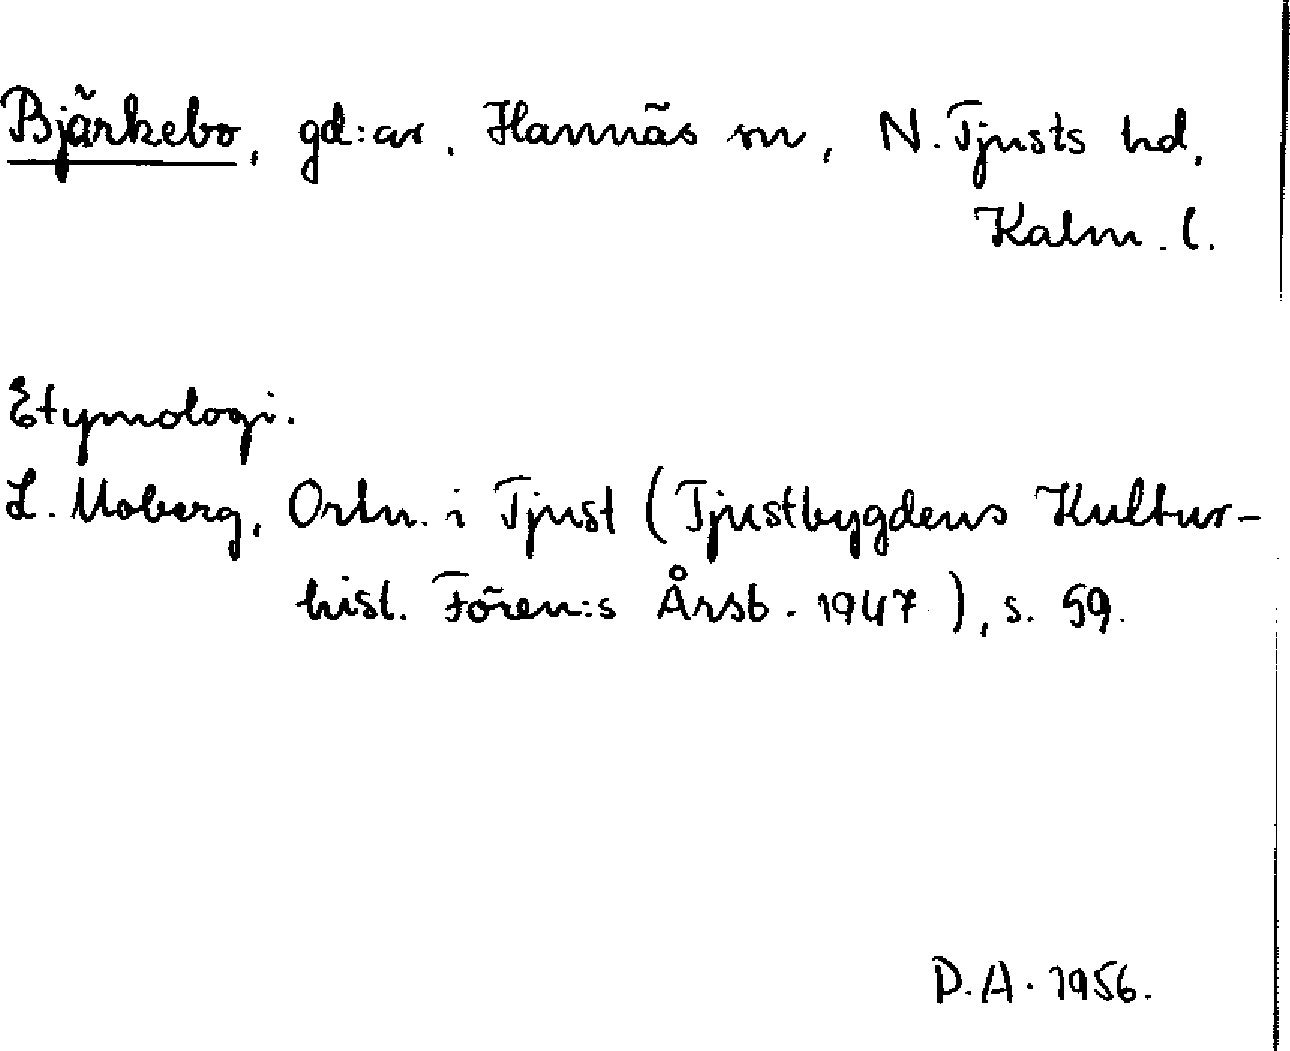 Bjärkebo, gd:ar. Hannäs sn, N. Tjusts hd,
Kalm. l.
Etymologi.
L. Moberg, Ortn. i Tjust (Tjustbygdens Kultur-
hist. Fören:s Årsb. 1947), s. 59.
D.A. 1956.